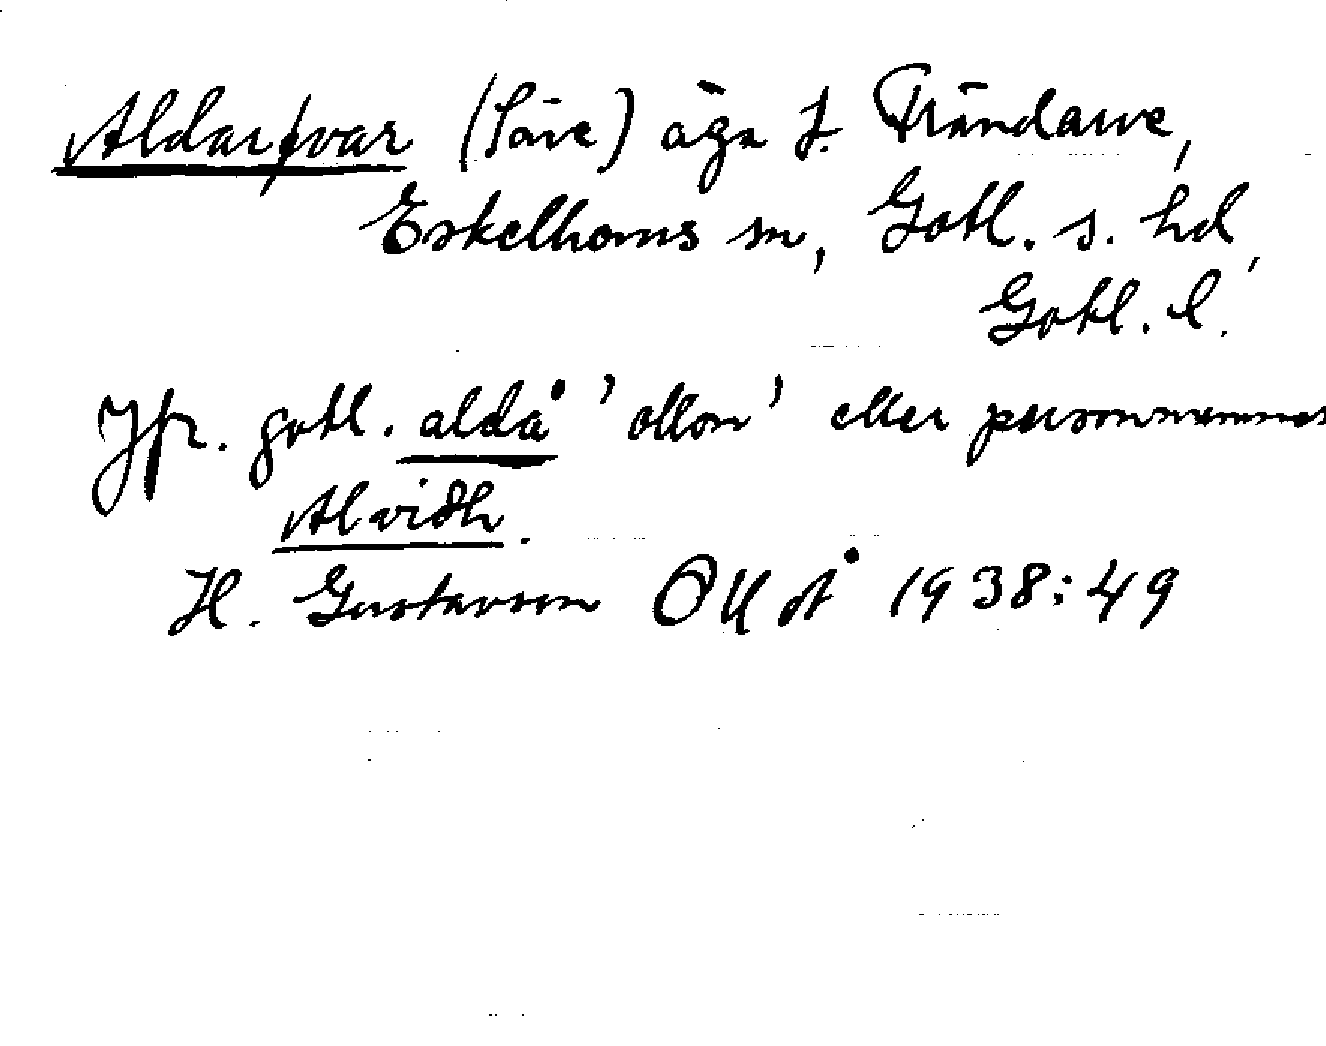 Aldarfvar (Säve) äga t. Trändarve,
Eskelhems sn, Gotl. s. hd,
Gotl. l.
Jfr. gotl. aldå 'ollon' eller personnamnet
Alvidh.
H. Gustavson 1938:49